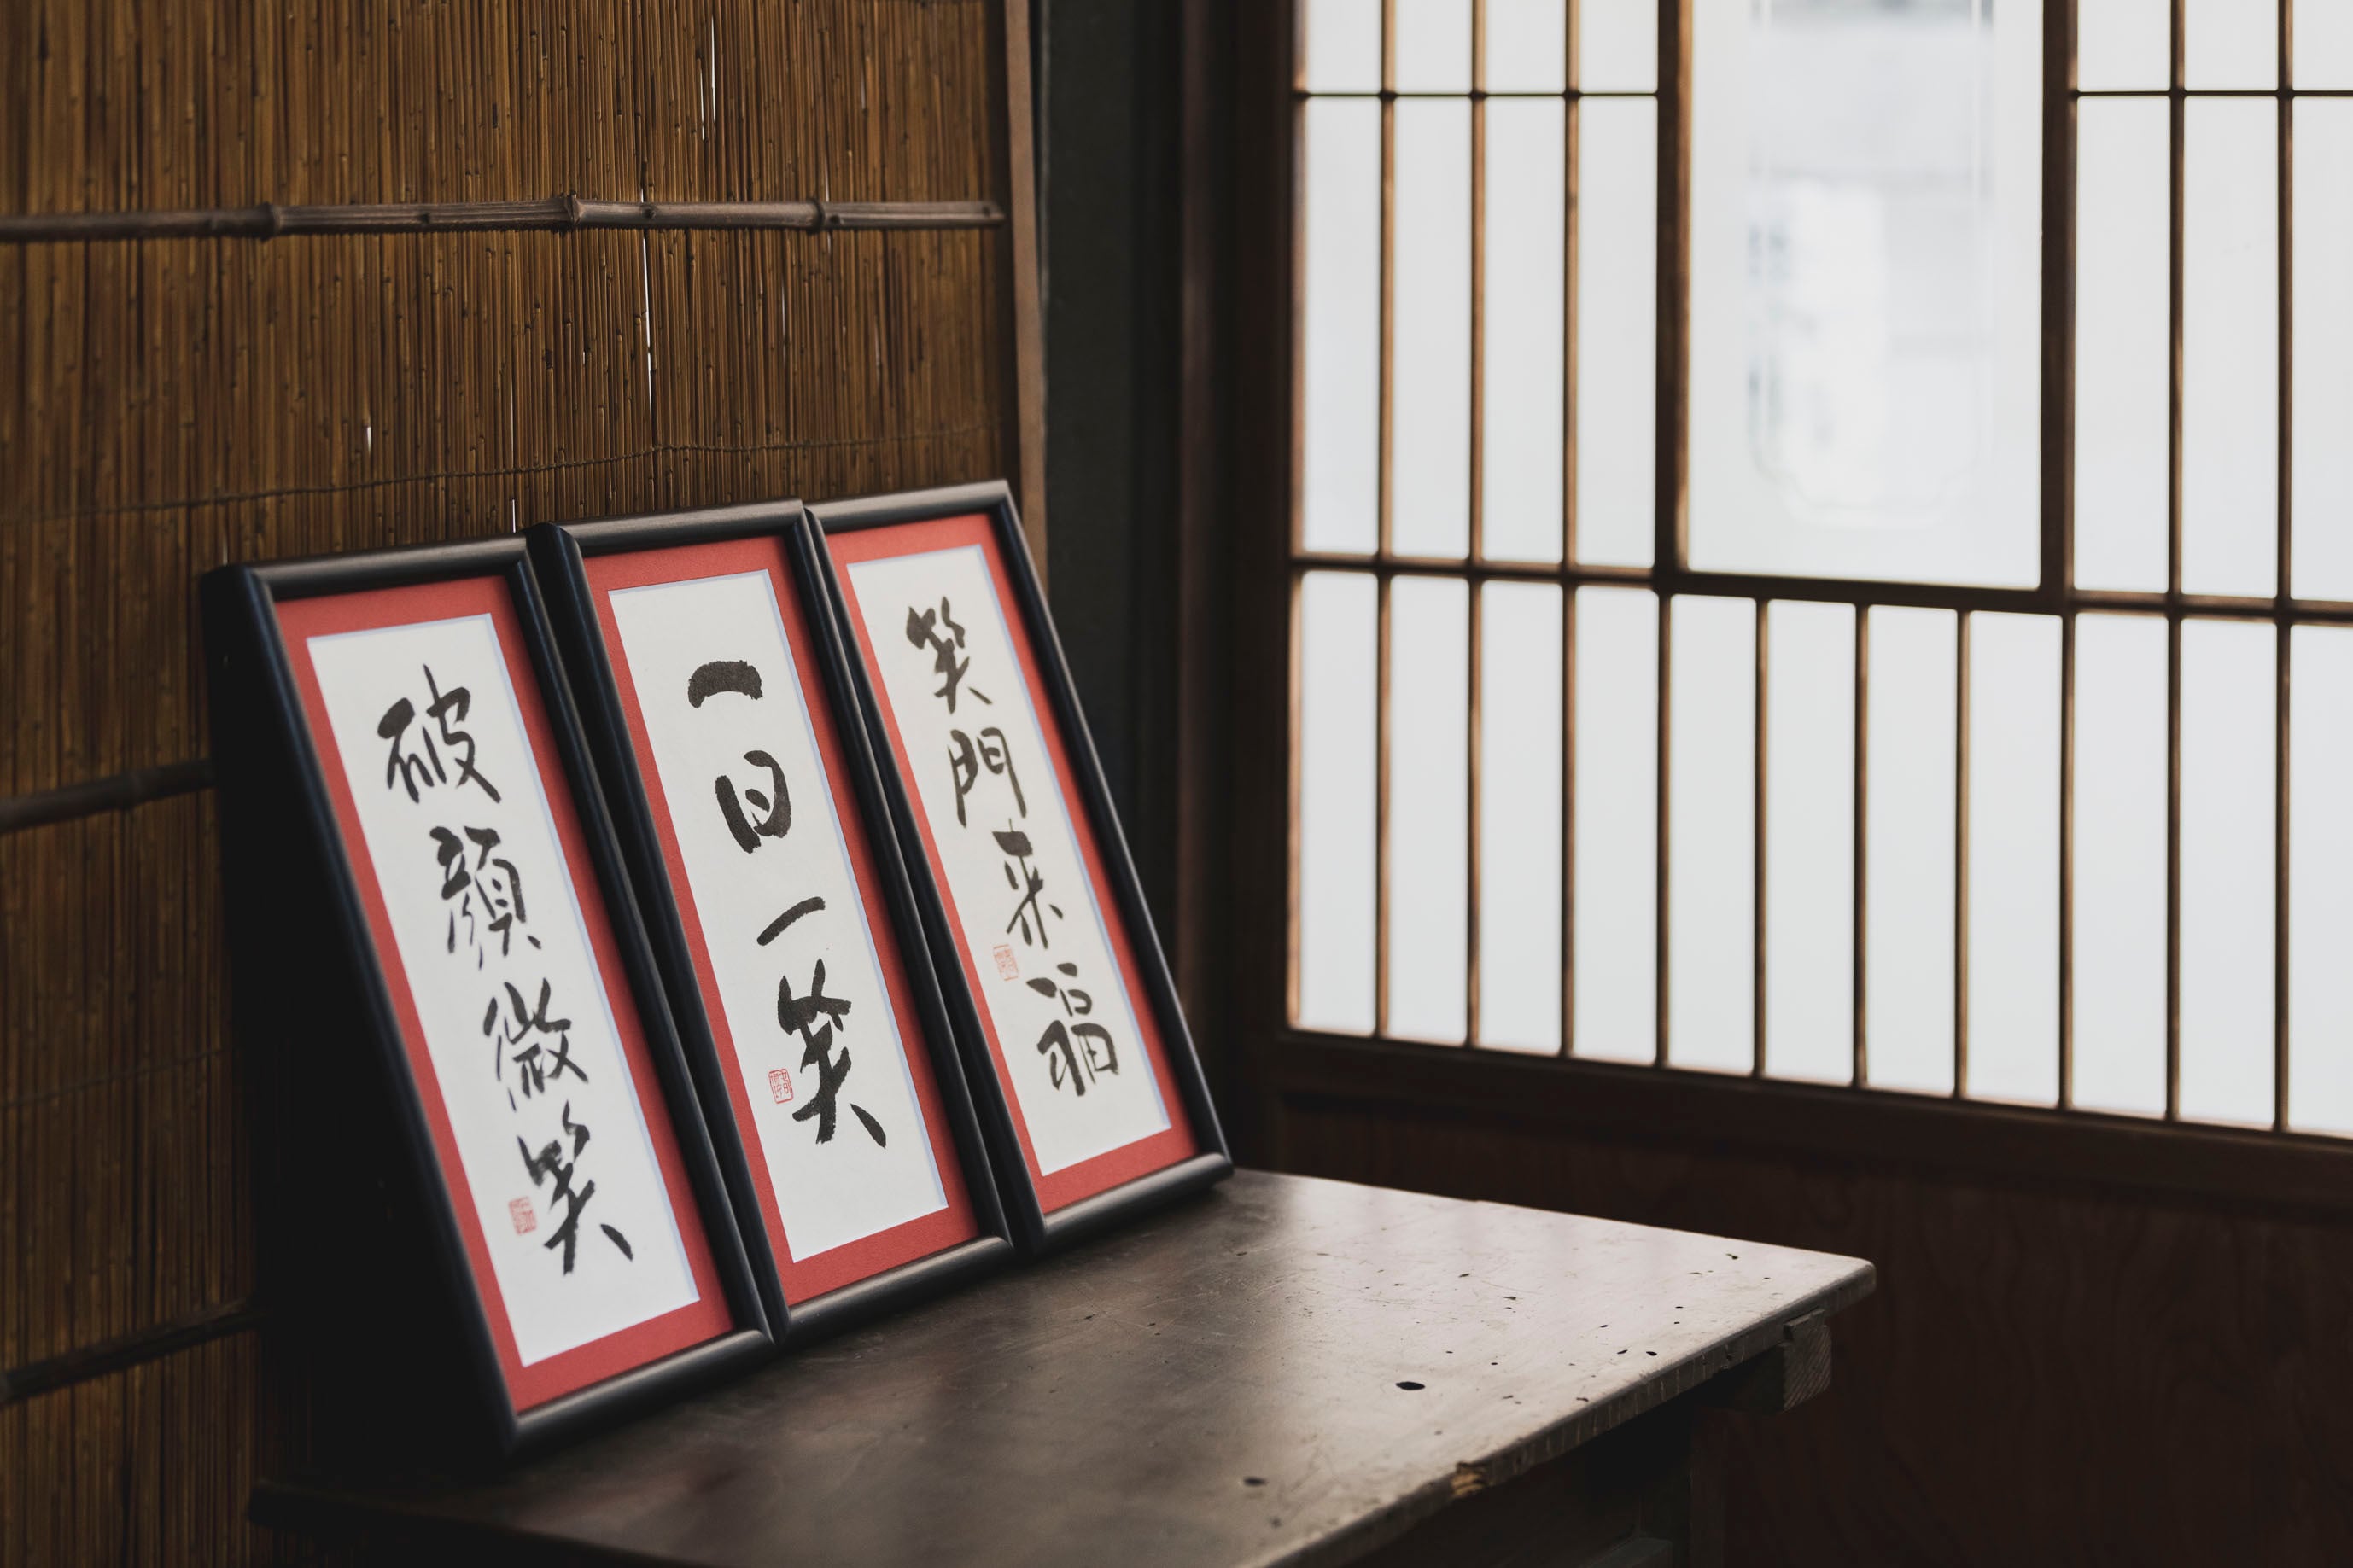 破顔微笑
一日一笑
笑門来福